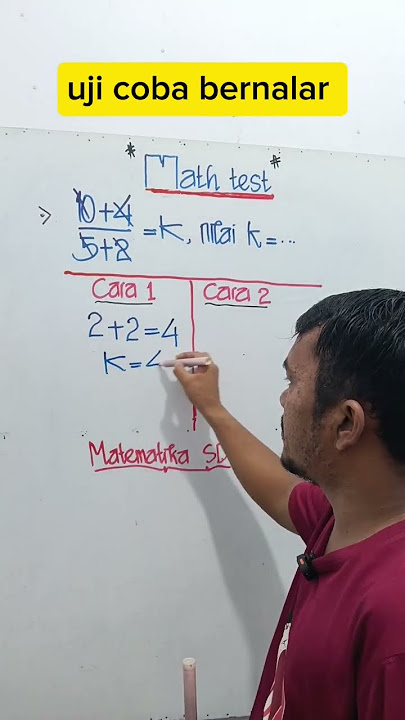 uji coba bernalar
* Math test *
10+4
5+2
=K, nilai K=...
Cara 1
Cara 2
2+2=4
K=4
Matematika SD